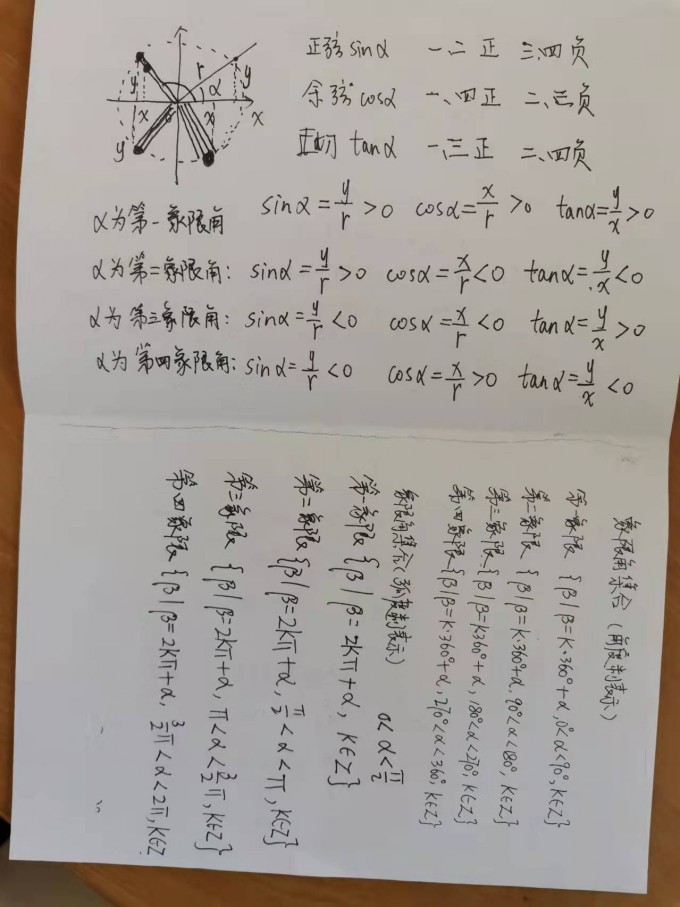 y r y
α
x x x
y
正弦 sinα 一二 正 三、四负
余弦 cosα 一、四正 二、三负
正切 tanα 一、三正 二、四负
α为第一象限角 sinα=y/r>0 cosα=x/r>0 tanα=y/x>0
α为第二象限角: sinα=y/r>0 cosα=x/r<0 tanα=y/x<0
α为第三象限角: sinα=y/r<0 cosα=x/r<0 tanα=y/x>0
α为第四象限角: sinα=y/r<0 cosα=x/r>0 tanα=y/x<0
象限角集合(角度制表示)
第一象限 {β|β=k·360°+α,0°<α<90°,k∈Z}
第二象限 {β|β=k·360°+α,90°<α<180°,k∈Z}
第三象限 {β|β=k·360°+α,180°<α<270°,k∈Z}
第四象限 {β|β=k·360°+α,270°<α<360°,k∈Z}
象限角集合(弧度制表示)
0<α<π/2
第一象限 {β|β=2kπ+α, k∈Z}
第二象限 {β|β=2kπ+α, π/2<α<π,k∈Z}
第三象限 {β|β=2kπ+α, π<α<3/2π,k∈Z}
第四象限 {β|β=2kπ+α, 3/2π<α<2π,k∈Z